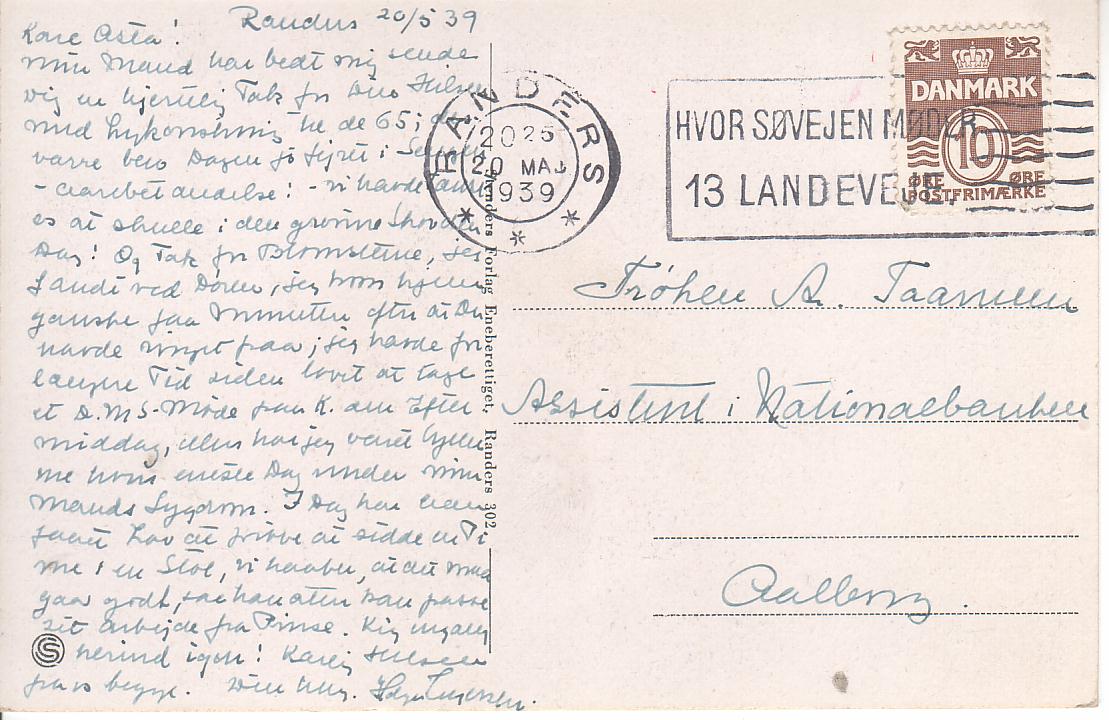 Randers 20/5 39
Kære Asta!
min Mand har bedt mig sende
dig en hjertelig Tak for Din Hilsen
med Lykønskning til de 65; de
varre ben Dagen
es at skulle i den grønne Skov den
Dag! Og Tak for Blomsterne, jeg
fandt ved Døren, jeg kom hjem
ganske faa Minutter efter at Du
havde ringet paa; jeg havde for
længere Tid siden lovet at tage
et D.M.S-Møde paa K. den Efter-
middag, ellers har jeg været hjem-
me hver eneste Dag under min
Mands Sygdom. I Dag har han
faaet Lov at prøve at sidde en Ti-
me i en Stol, vi haaber, at det maa
gaa godt, saa han atter kan passe
sit Arbejde fra Pinse. Kig engang
herind igen! Kærlig Hilsen
fra os begge. Din heng.
RANDERS
2025
20 MAJ
1939
HVOR SØVEJEN MØDER
13 LANDEVEJE
DANMARK
10
ØRE ØRE
POSTFRIMÆRKE
Randers Forlag Eneberettiget, Randers 302
Frøken A.
Assistent i Nationalbanken
Aalborg.
S